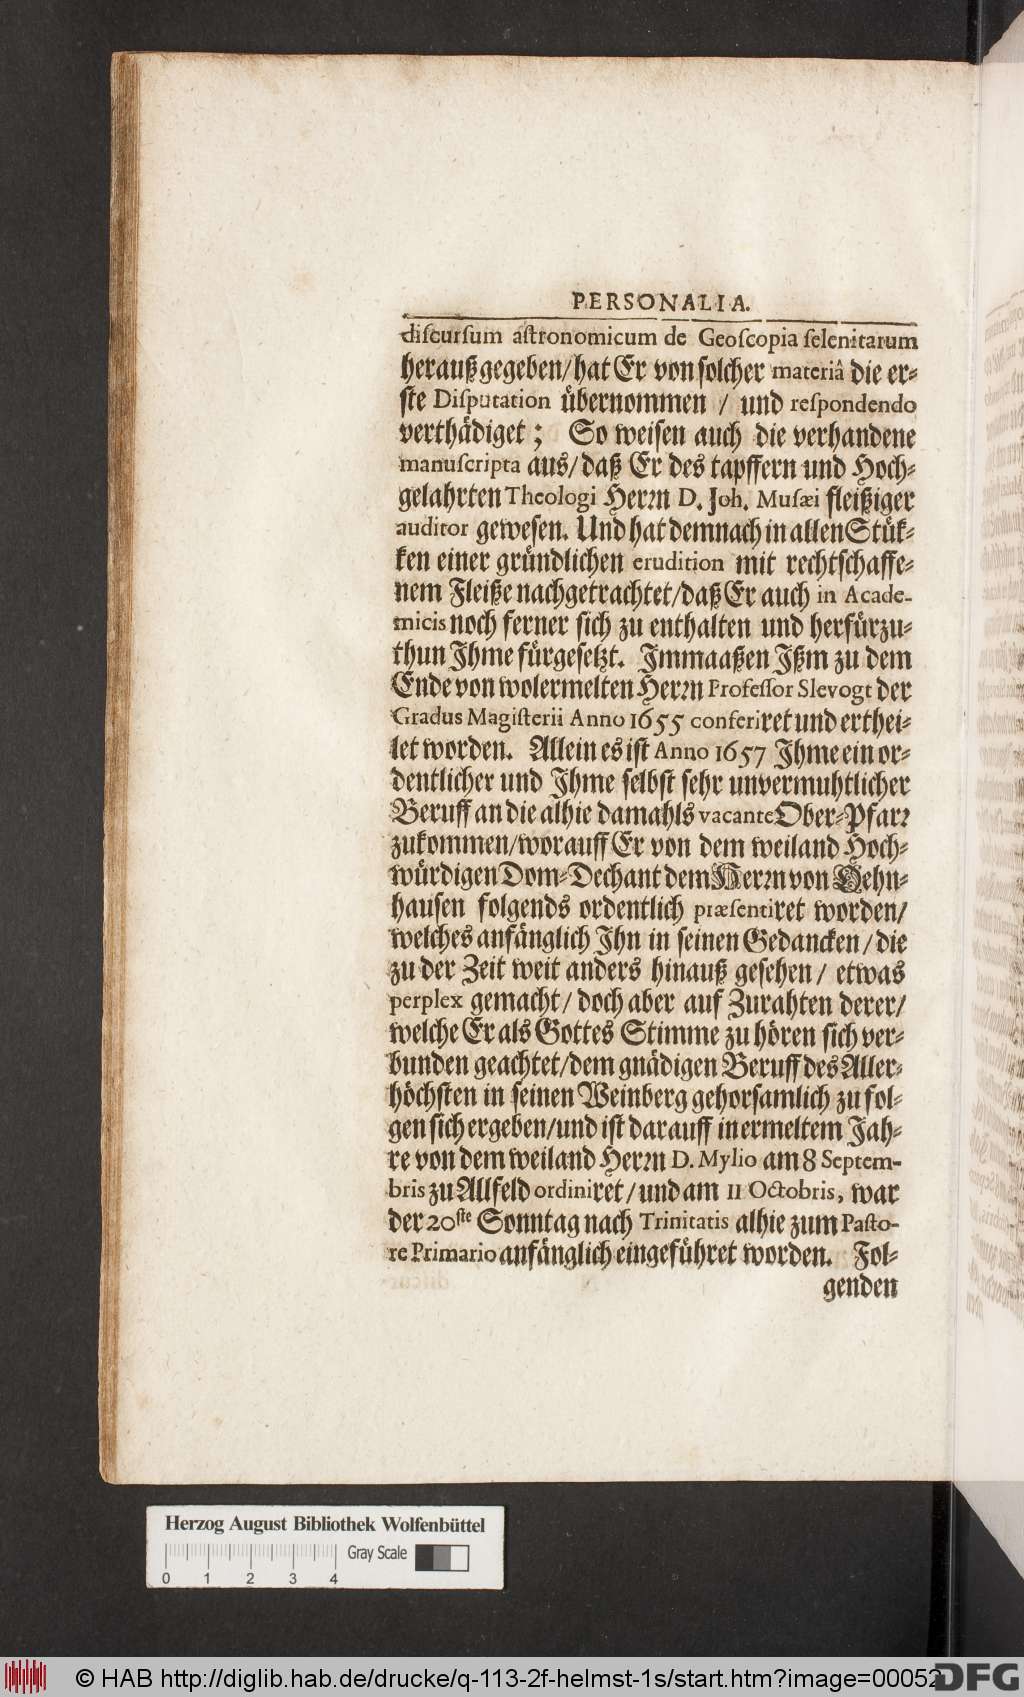 PERSONALIA.
discursum astronomicum de Geoscopia selenitarum
herauß gegeben/ hat Er von solcher materiâ die er-
ste Disputation übernommen / und respondendo
verthädiget ; So weisen auch die verhandene
manuscripta aus/ daß Er des tapffern und Hoch-
gelahrten Theologi Herrn D. Joh. Musæi fleißiger
auditor gewesen. Und hat demnach in allen Stük-
ken einer gründlichen erudition mit rechtschaffe-
nem Fleiße nachgetrachtet/ daß Er auch in Acade-
micis noch ferner sich zu enthalten und herfürzu-
thun Ihme fürgesetzt. Immaaßen Ißm zu dem
Ende von wolermelten Herrn Professor Slevogt der
Gradus Magisterii Anno 1655 conferiret und erthei-
let worden. Allein es ist Anno 1657 Ihme ein or-
dentlicher und Ihme selbst sehr unvermuhtlicher
Beruff an die alhie damahls vacante Ober-Pfarr
zukommen/ worauff Er von dem weiland Hoch-
würdigen Dom-Dechant dem Herrn von Oehn-
hausen folgends ordentlich præsentiret worden/
welches anfänglich Ihn in seinen Gedancken / die
zu der Zeit weit anders hinauß gesehen / etwas
perplex gemacht / doch aber auf Zurahten derer/
welche Er als Gottes Stimme zu hören sich ver-
bunden geachtet/ dem gnädigen Beruff des Aller-
höchsten in seinen Weinberg gehorsamlich zu fol-
gen sich ergeben/ und ist darauff in ermeltem Jah-
re von dem weiland Herrn D. Mylio am 8 Septem-
bris zu Allfeld ordiniret / und am 11 Octobris, war
der 20ste Sonntag nach Trinitatis alhie zum Pasto-
re Primario anfänglich eingeführet worden. Fol-
genden
Herzog August Bibliothek Wolfenbüttel
Gray Scale
0 1 2 3 4
© HAB http://diglib.hab.de/drucke/q-113-2f-helmst-1s/start.htm?image=00052
DFG